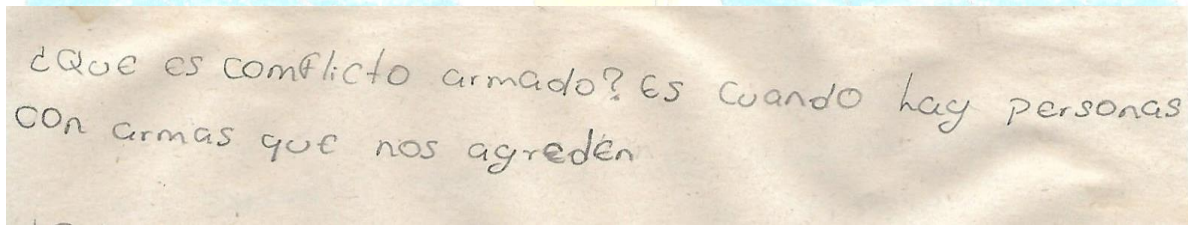 ¿Que es comflicto armado? Es cuando hay personas
con armas que nos agreden